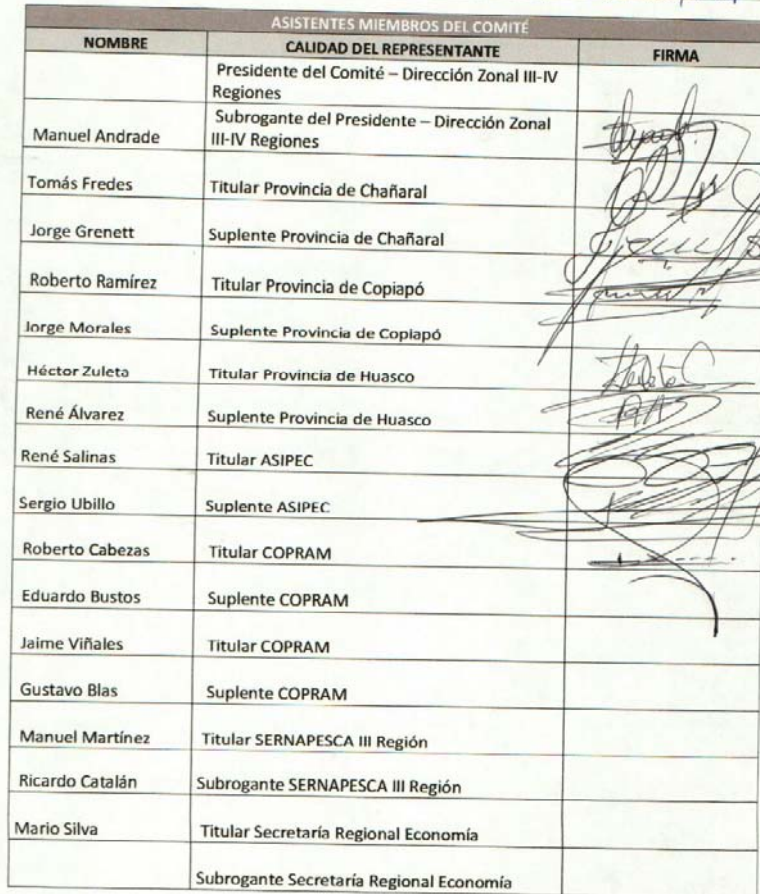 ASISTENTES MIEMBROS DEL COMITÉ
NOMBRE CALIDAD DEL REPRESENTANTE FIRMA
Presidente del Comité – Dirección Zonal III-IV
Regiones
Manuel Andrade Subrogante del Presidente – Dirección Zonal
III-IV Regiones
Tomás Fredes Titular Provincia de Chañaral
Jorge Grenett Suplente Provincia de Chañaral
Roberto Ramírez Titular Provincia de Copiapó
Jorge Morales Suplente Provincia de Copiapó
Héctor Zuleta Titular Provincia de Huasco
René Álvarez Suplente Provincia de Huasco
René Salinas Titular ASIPEC
Sergio Ubillo Suplente ASIPEC
Roberto Cabezas Titular COPRAM
Eduardo Bustos Suplente COPRAM
Jaime Viñales Titular COPRAM
Gustavo Blas Suplente COPRAM
Manuel Martínez Titular SERNAPESCA III Región
Ricardo Catalán Subrogante SERNAPESCA III Región
Mario Silva Titular Secretaría Regional Economía
Subrogante Secretaría Regional Economía